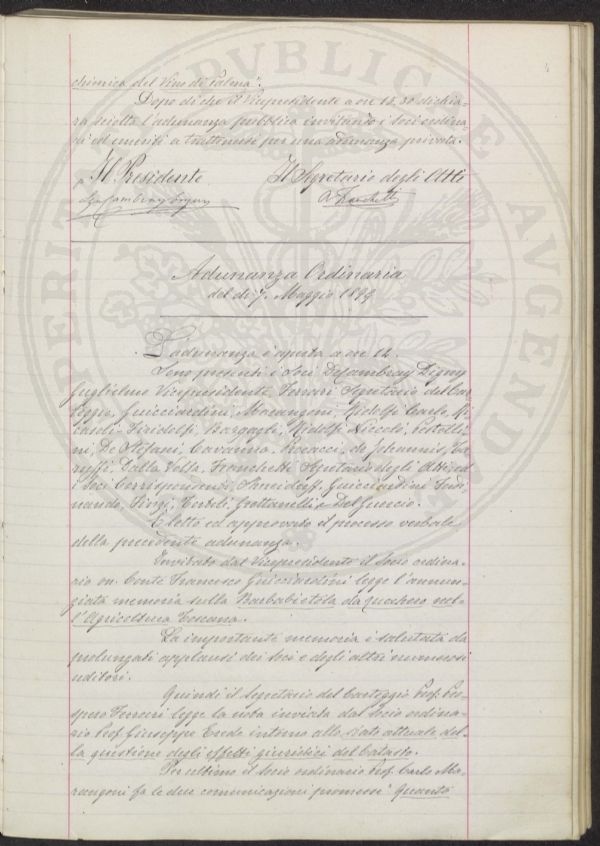 chimica del Vino di Palma".
Dopo di che il Vicepresidente a ore 12.30 dichia-
ra sciolta l'adunanza pubblica invitando i Soci ordina-
ri ed emeriti a trattenersi per una adunanza privata.
Il Presidente Il Segretario degli Atti
Cambray Digny A. Franchetti
Adunanza Ordinaria
del dì 7. Maggio 1899.
L'adunanza è aperta a ore 12.
Sono presenti i Soci De Cambray Digny
Guglielmo Vicepresidente Ferrari Segretario del Car-
teggio, Guicciardini, Marangoni, Ridolfi Carlo, Ri-
casoli Firidolfi, Bargagli, Ridolfi Niccolò, Pestelli-
ni, De Stefani, Cavanna, Roeacci, de Johannis,
Dalla Volta, Franchetti Segretario degli Atti, ed
i Soci Corrispondenti Guicciardini Ferdi-
nando, Vinci, Grottanelli e Del Guercio.
È letto ed approvato il processo verbale
della precedente adunanza.
Invitato dal Vicepresidente il Socio ordina-
rio on. Conte Francesco Guicciardini legge l'annun-
ziata memoria sulla Barbabietola da zucchero nel-
l'Agricoltura Toscana.
La importante memoria è salutata da
prolungati applausi dei Soci e degli altri numerosi
uditori.
Quindi il Segretario del Carteggio Prof. Pro-
spero Ferrari legge la nota inviata dal Socio ordina-
rio Prof. Giuseppe Erede intorno allo Stato attuale del-
la questione degli effetti giuridici del Catasto.
Per ultimo il Socio ordinario Prof. Carlo Ma-
rangoni fa le due comunicazioni promesse "Quanta
PERIT
PVBLICAE
AVGENDAE